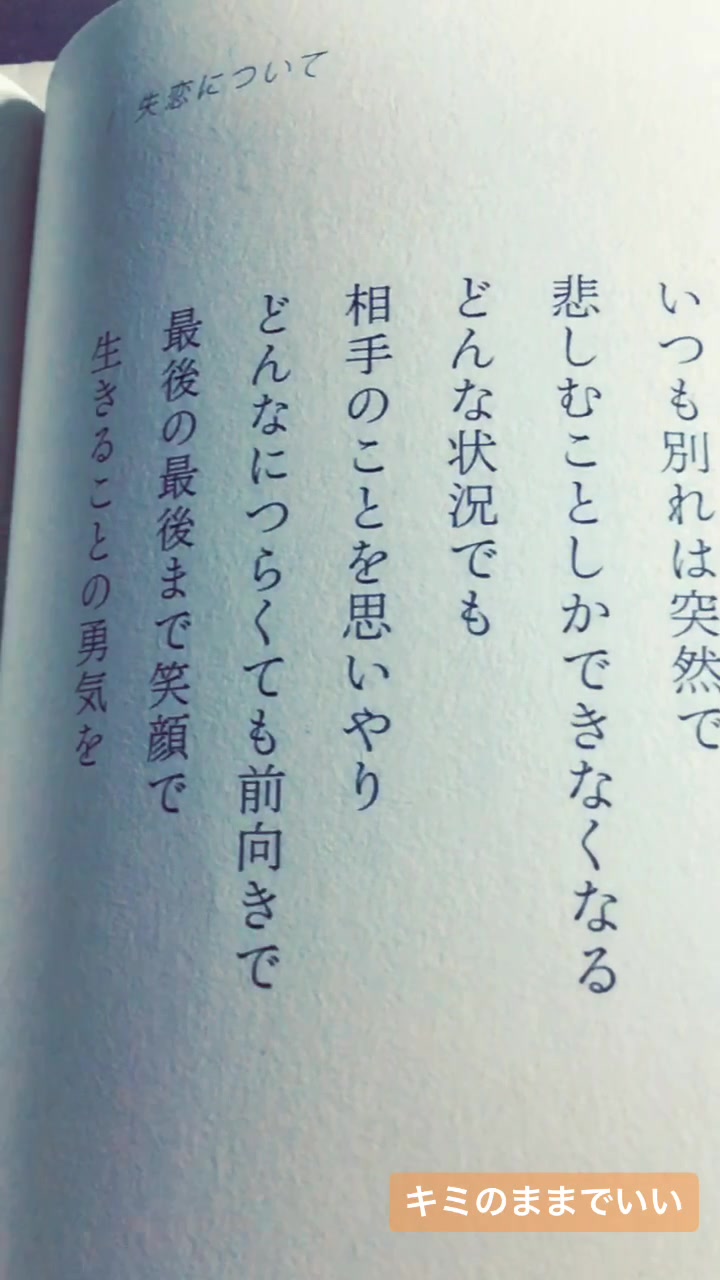 失恋について
いつも別れは突然で
悲しむことしかできなくなる
どんな状況でも
相手のことを思いやり
どんなにつらくても前向きで
最後の最後まで笑顔で
生きることの勇気を
キミのままでいい